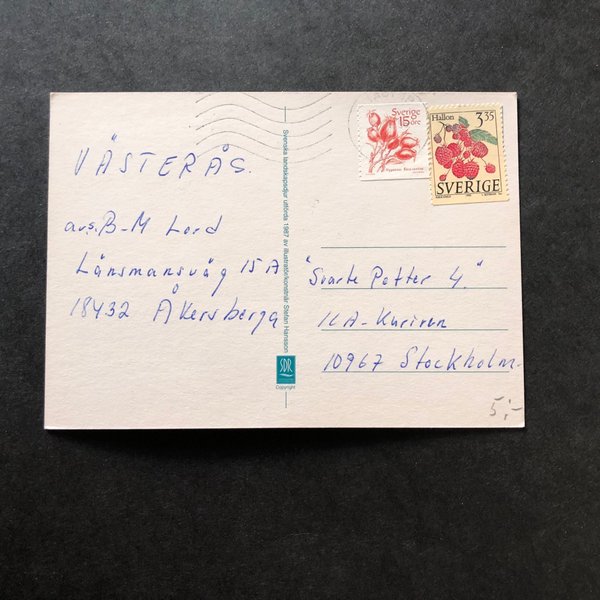 VÄSTERÅS.
avs. B-M Lord
Länsmansväg 15 A
18432 Åkersberga
Svenska landskapsdjur utförda 1987 av illustratör/konstnär Stefan Hansson
SDR
Copyright
Sverige
15 öre
Hallon
3 35
SVERIGE
"Svarte Petter 4."
ICA-Kuriren
10967 Stockholm.
5:-